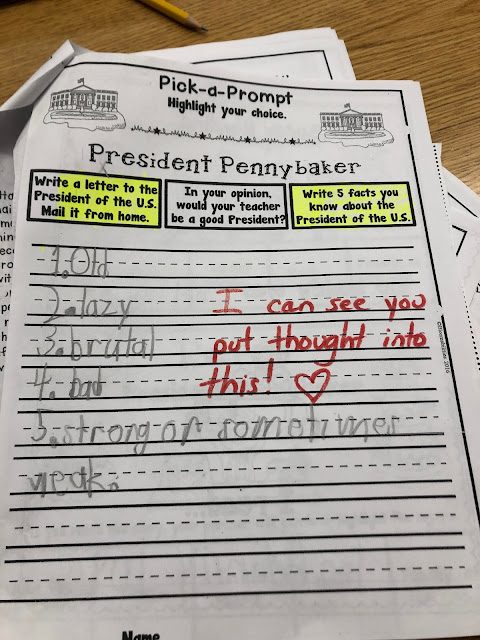 Pick-a-Prompt
Highlight your choice.
President Pennybaker
Write a letter to the
President of the U.S.
Mail it from home.
In your opinion,
would your teacher
be a good President?
Write 5 facts you
know about the
President of the U.S.
1. Old
2. lazy
3. brutal
4. bad
5. strong or sometimes
weak.
I can see you
put thought into
this! ♡
Name